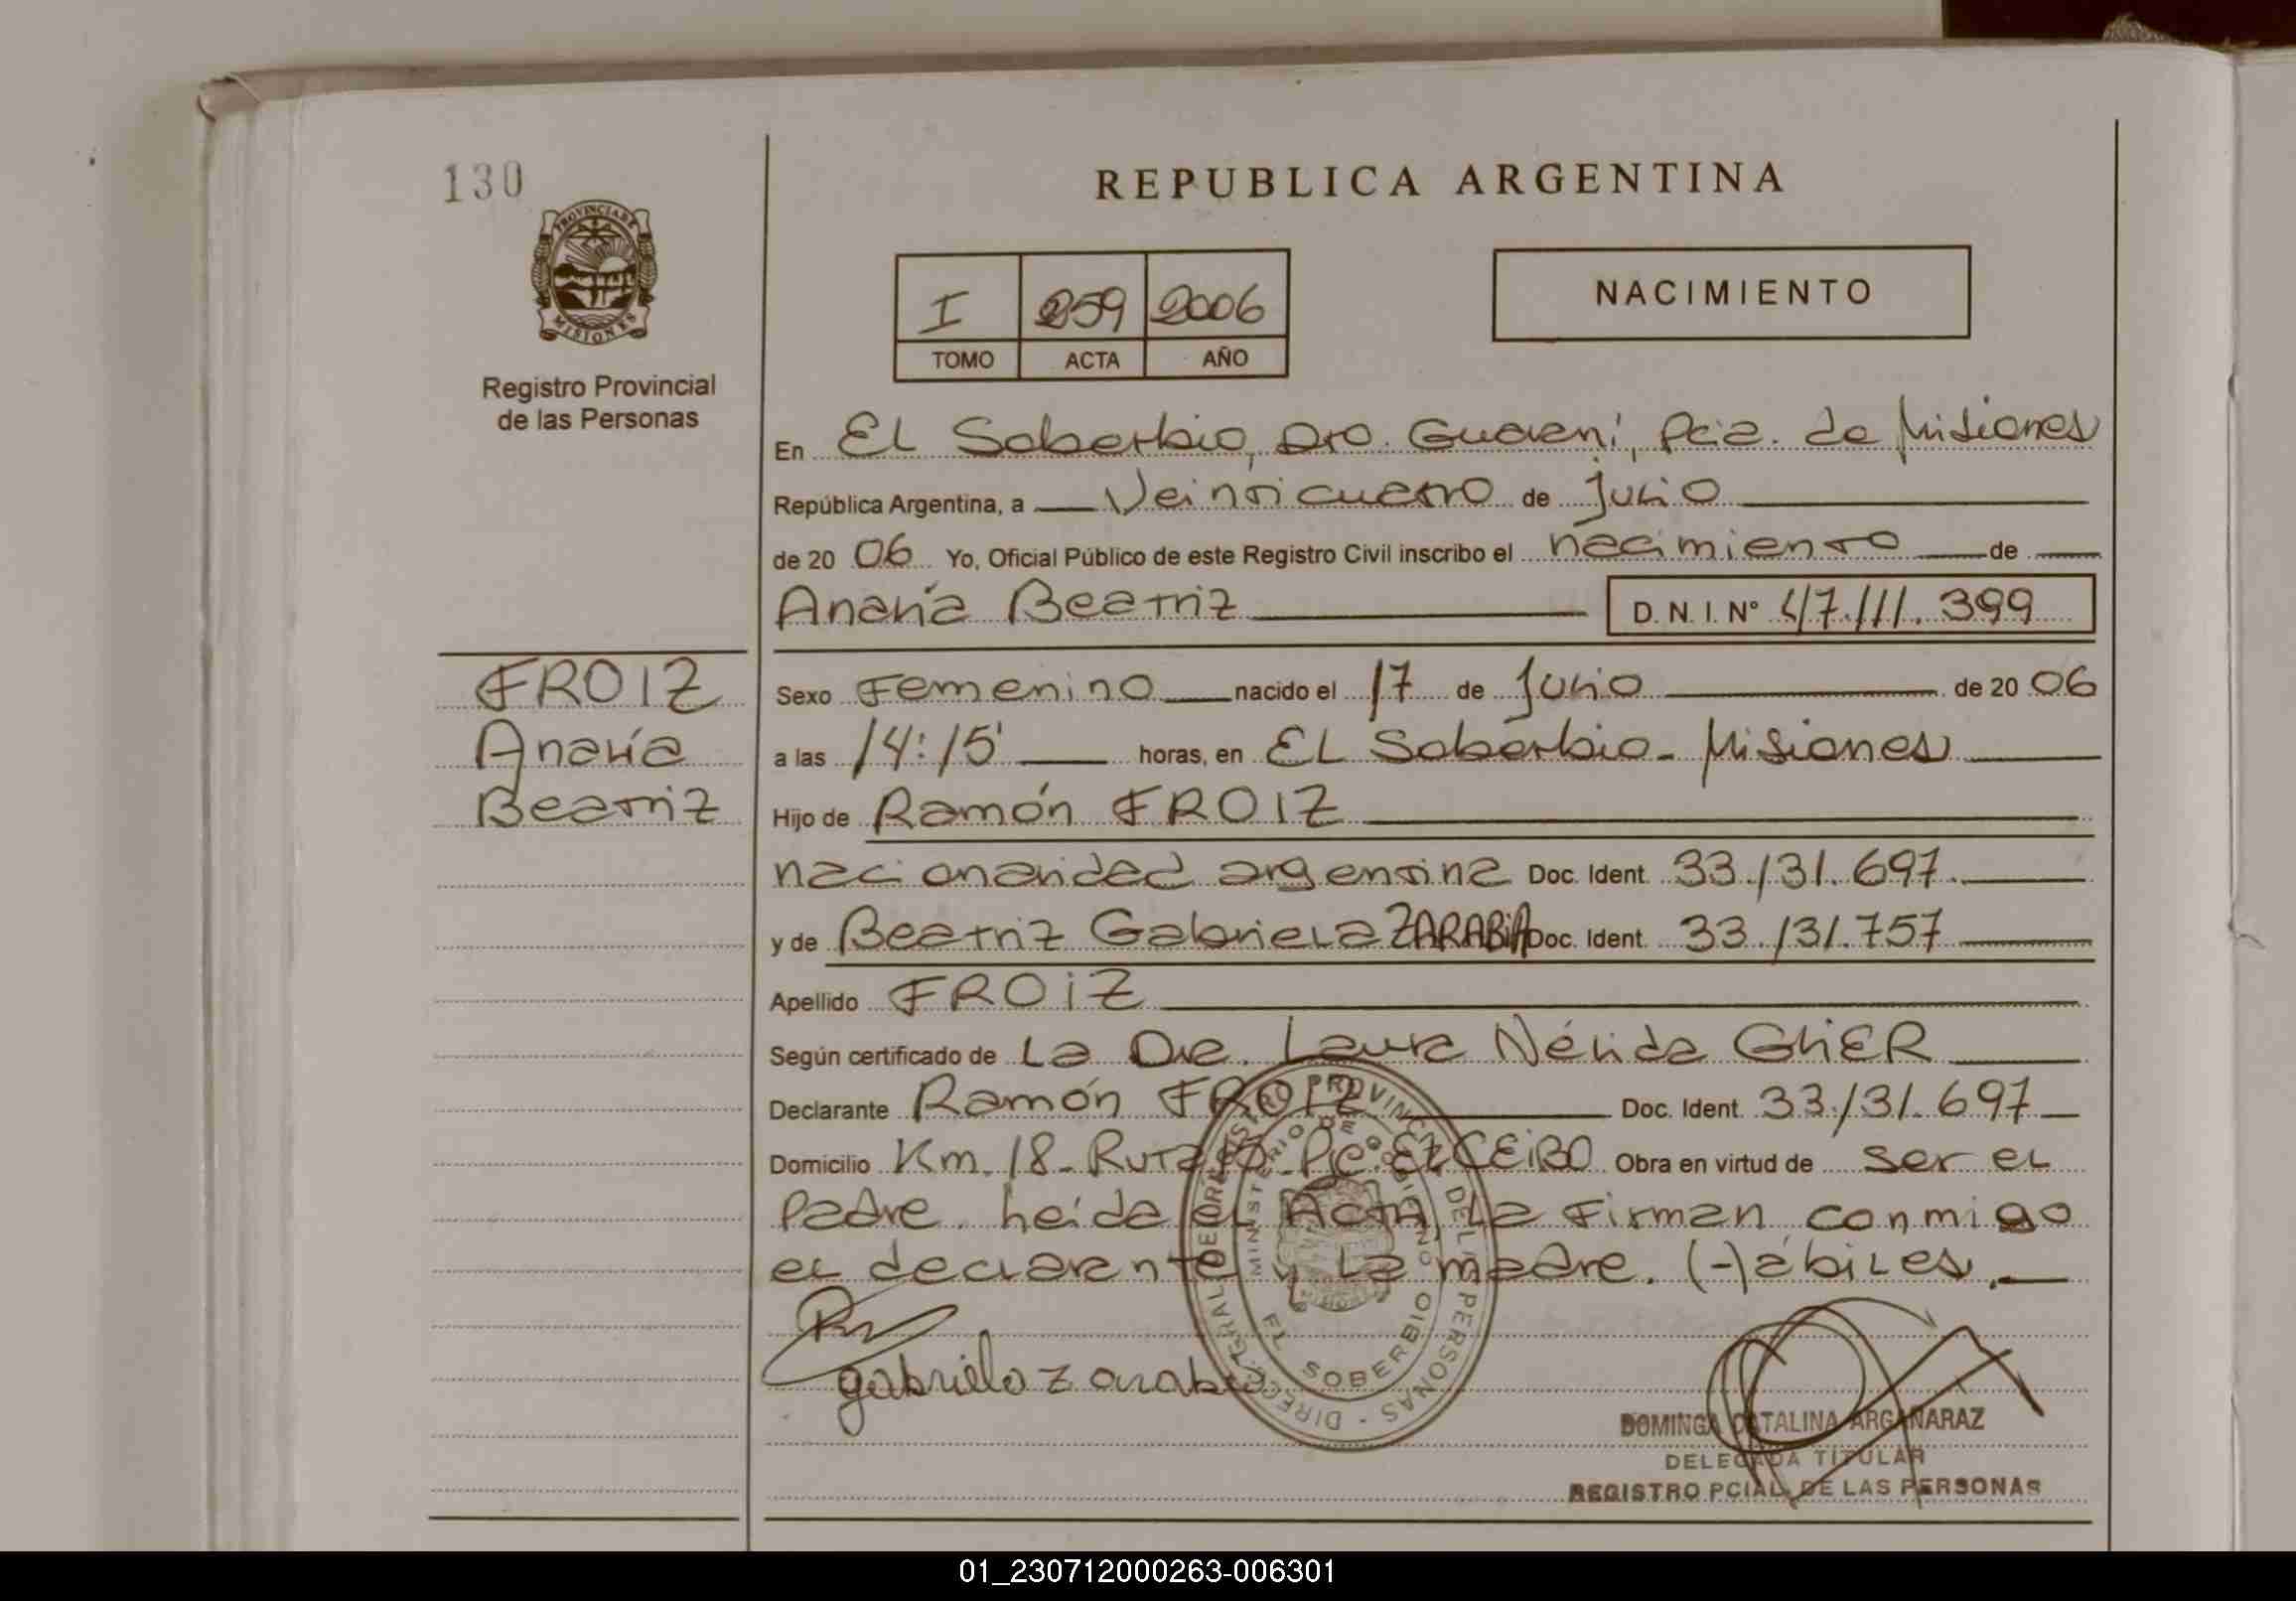 130
PROVINCIA DE
MISIONES
Registro Provincial
de las Personas
REPUBLICA ARGENTINA
I 259 2006
TOMO ACTA AÑO
NACIMIENTO
En El Soberbio, Dto. Guaraní, Pcia. de Misiones
República Argentina, a Veinticuatro de Julio
de 20 06 Yo, Oficial Público de este Registro Civil inscribo el nacimiento de
Analía Beatriz D.N.I. Nº 47.111.399
FROIZ
Analía
Beatriz
Sexo Femenino nacido el 17 de Julio de 20 06
a las 14:15' horas, en El Soberbio - Misiones
Hijo de Ramón FROIZ
nacionalidad argentina Doc. Ident. 33.131.697.
y de Beatriz Gabriela ZARABIA Doc. Ident. 33.131.757
Apellido FROIZ
Según certificado de La Dra. Laura Nélida GLIER
Declarante Ramón FROIZ Doc. Ident. 33.131.697
Domicilio Km. 18 - Ruta CEIBO Obra en virtud de ser el
Padre. Leída el Acta, La Firman conmigo
el declarante y La madre. Hábiles.
gabriela zarabia
DIREC. GRAL. DEL REGISTRO PROVINCIAL DE LAS PERSONAS
MINISTERIO DE GOBIERNO
EL SOBERBIO
DOMINGA CATALINA ARGAÑARAZ
DELEGADA TITULAR
REGISTRO PCIAL. DE LAS PERSONAS
01_230712000263-006301